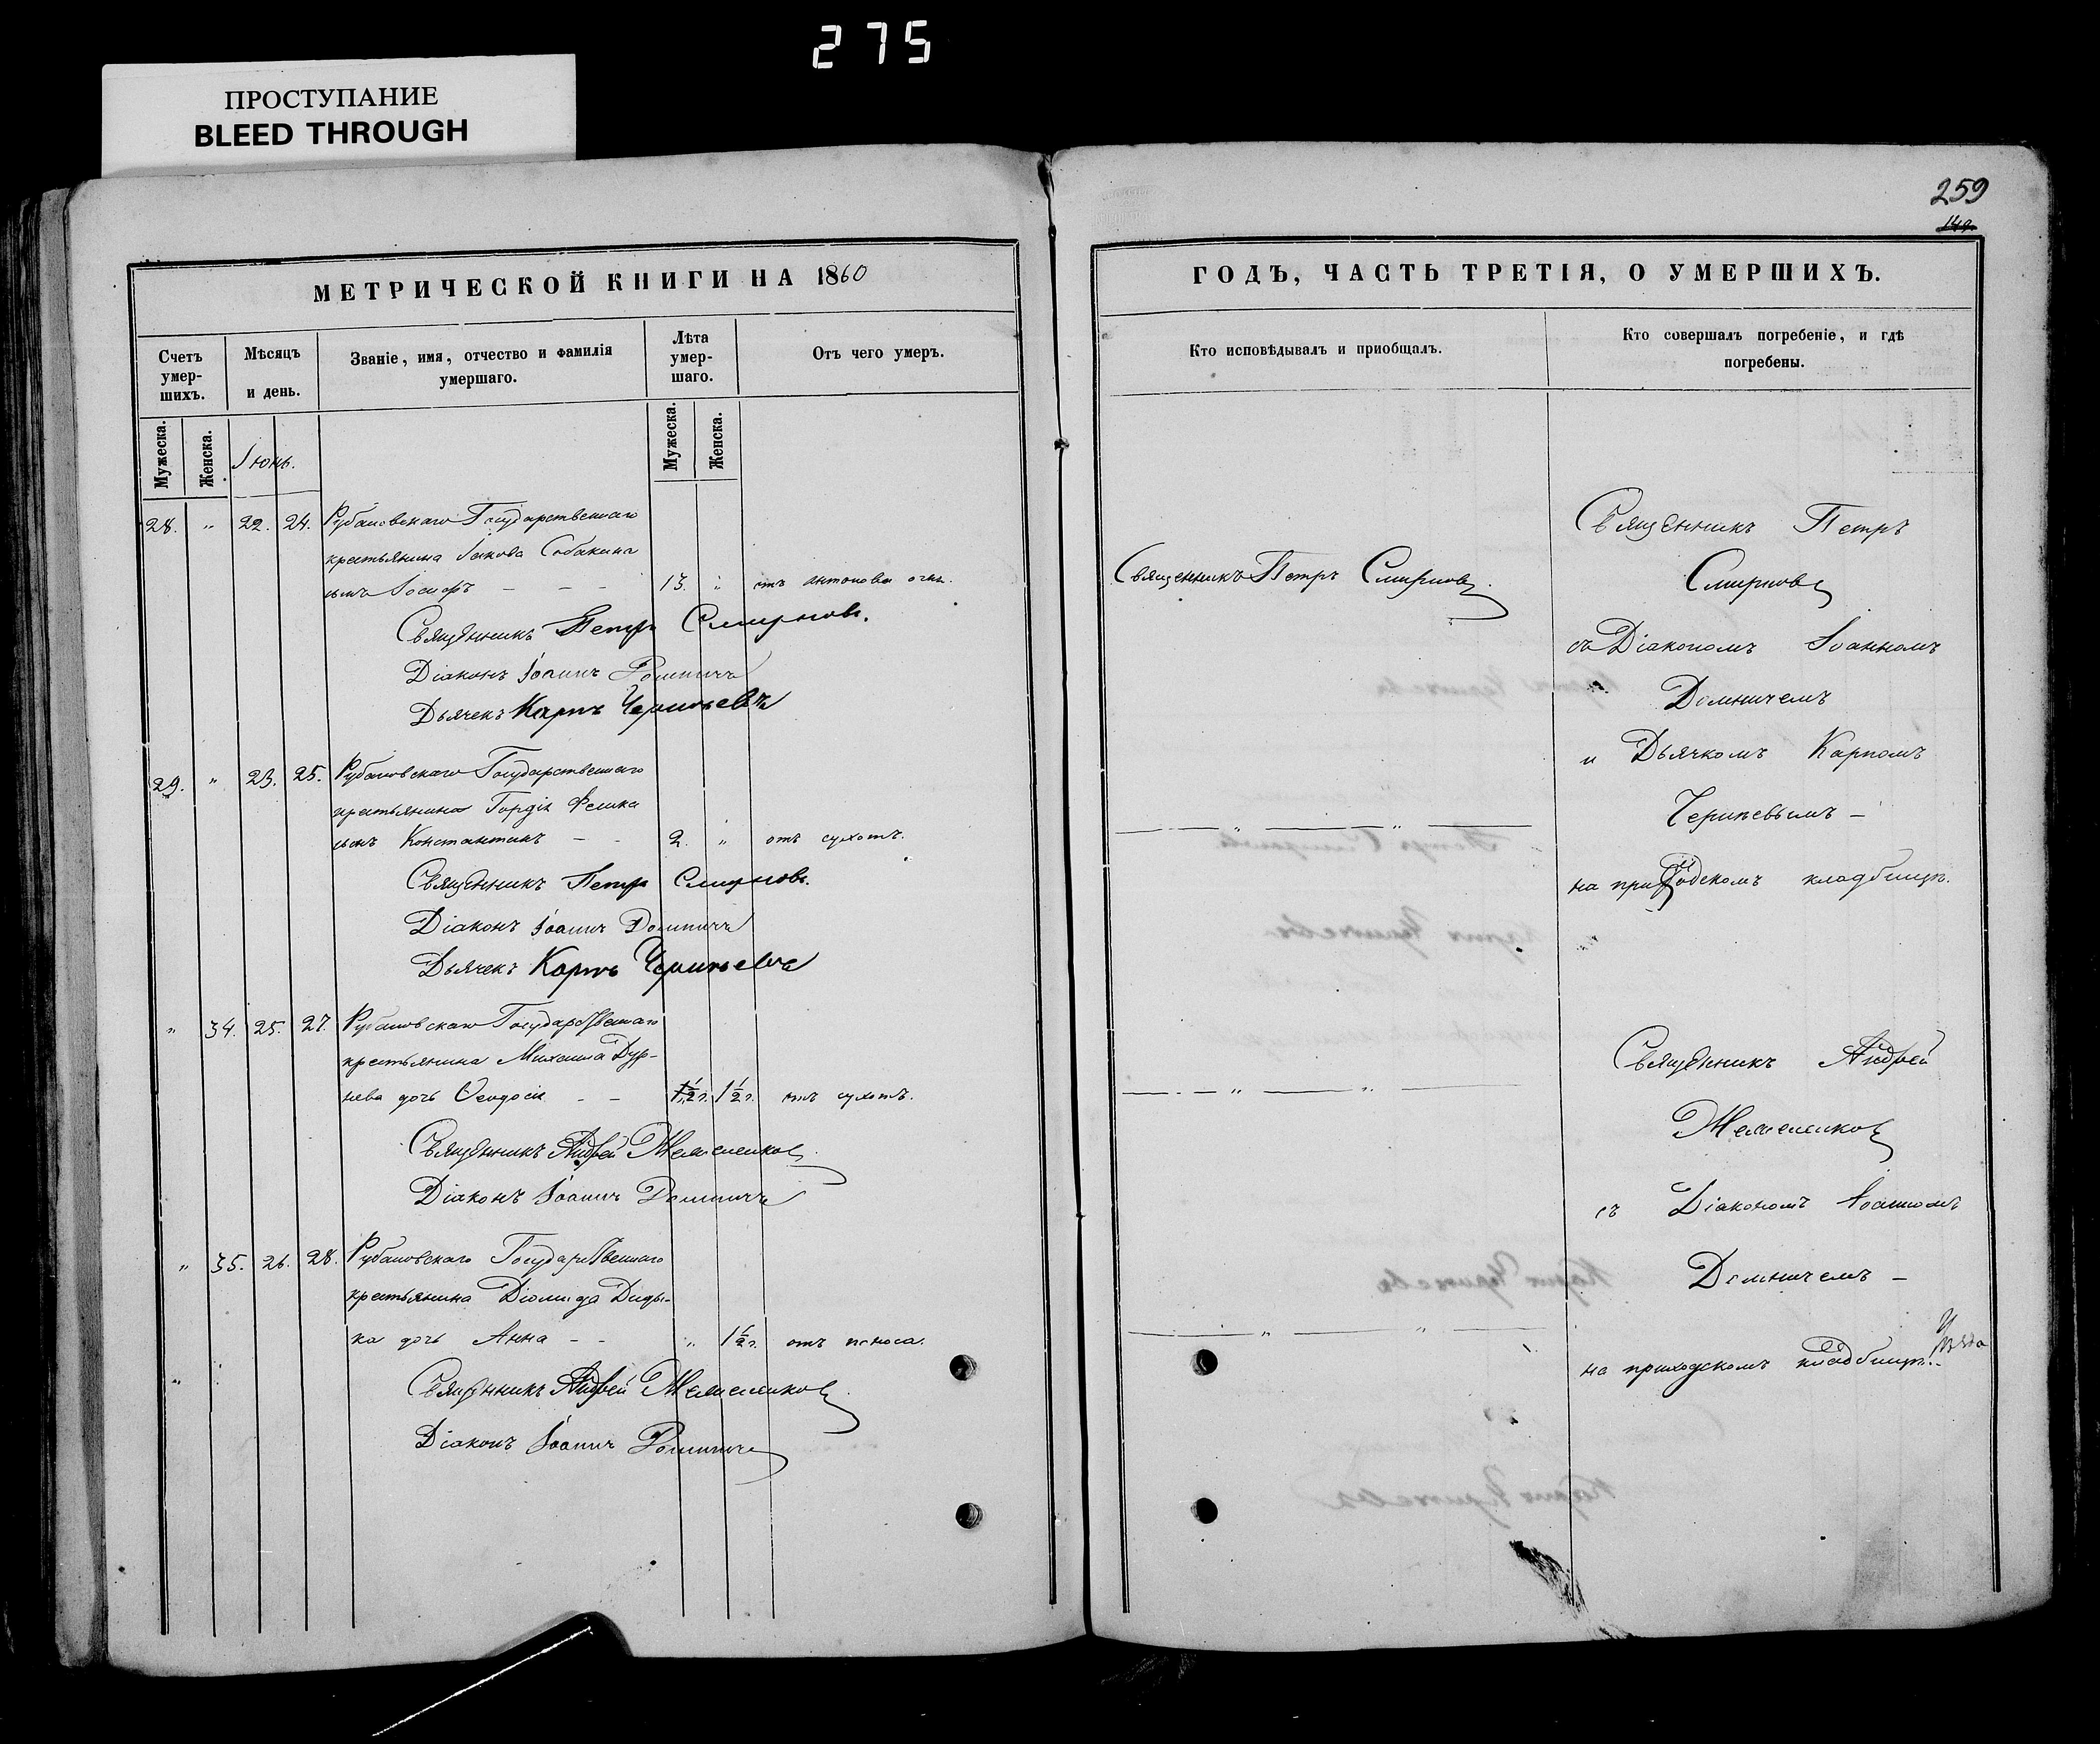 275
ПРОСТУПАНИЕ
BLEED THROUGH
259
МЕТРИЧЕСКОЙ КНИГИ НА 1860
Счетъ умер-шихъ.
Мѣсяцъ и день.
Званіе, имя, отчество и фамилія умершаго.
Лѣта умер-шаго.
Отъ чего умеръ.
Мужеска.
Женска.
Іюнь.
Мужеска.
Женска.
28. " 22. 24. Рубановскаго Государственнаго
крестьянина Іакова Собакина
сынъ Іосифъ — — — 13. " отъ антонова огня.
Священникъ Петръ Смирновъ.
Діаконъ Іоаннъ Домничъ
Дьячекъ Карпъ
29. " 23. 25. Рубановскаго Государственнаго
крестьянина Гордія
сынъ Константинъ — - 2. " отъ сухотъ.
Священникъ Петръ Смирновъ.
Діаконъ Іоаннъ Домничъ
Дьячекъ Карпъ
" 34. 25. 27. Рубановскаго Государственнаго
крестьянина Михаила Дур-
нева дочь Ѳеодосія - - 1½ г. 1½ г. отъ сухотъ.
Священникъ Андрей
Діаконъ Іоаннъ Домничъ
" 35. 26. 28. Рубановскаго Государственнаго
крестьянина Діомида Диды-
ка дочь Анна - - " 1½ г. отъ поноса.
"
Священникъ Андрей
Діаконъ Іоаннъ Домничъ
ГОДЪ, ЧАСТЬ ТРЕТІЯ, О УМЕРШИХЪ.
Кто исповѣдывалъ и приобщалъ.
Кто совершалъ погребеніе, и гдѣ погребены.
Священникъ Петръ Смирновъ.
— " — " —
— " — " —
— " — " —
Священникъ Петръ
Смирновъ
съ Діакономъ Іоанномъ
Домничемъ
и Дьячкомъ Карпомъ
на приходскомъ кладбищѣ.
Священникъ Андрей
съ Діакономъ Іоанномъ
Домничемъ —
на приходскомъ кладбищѣ.